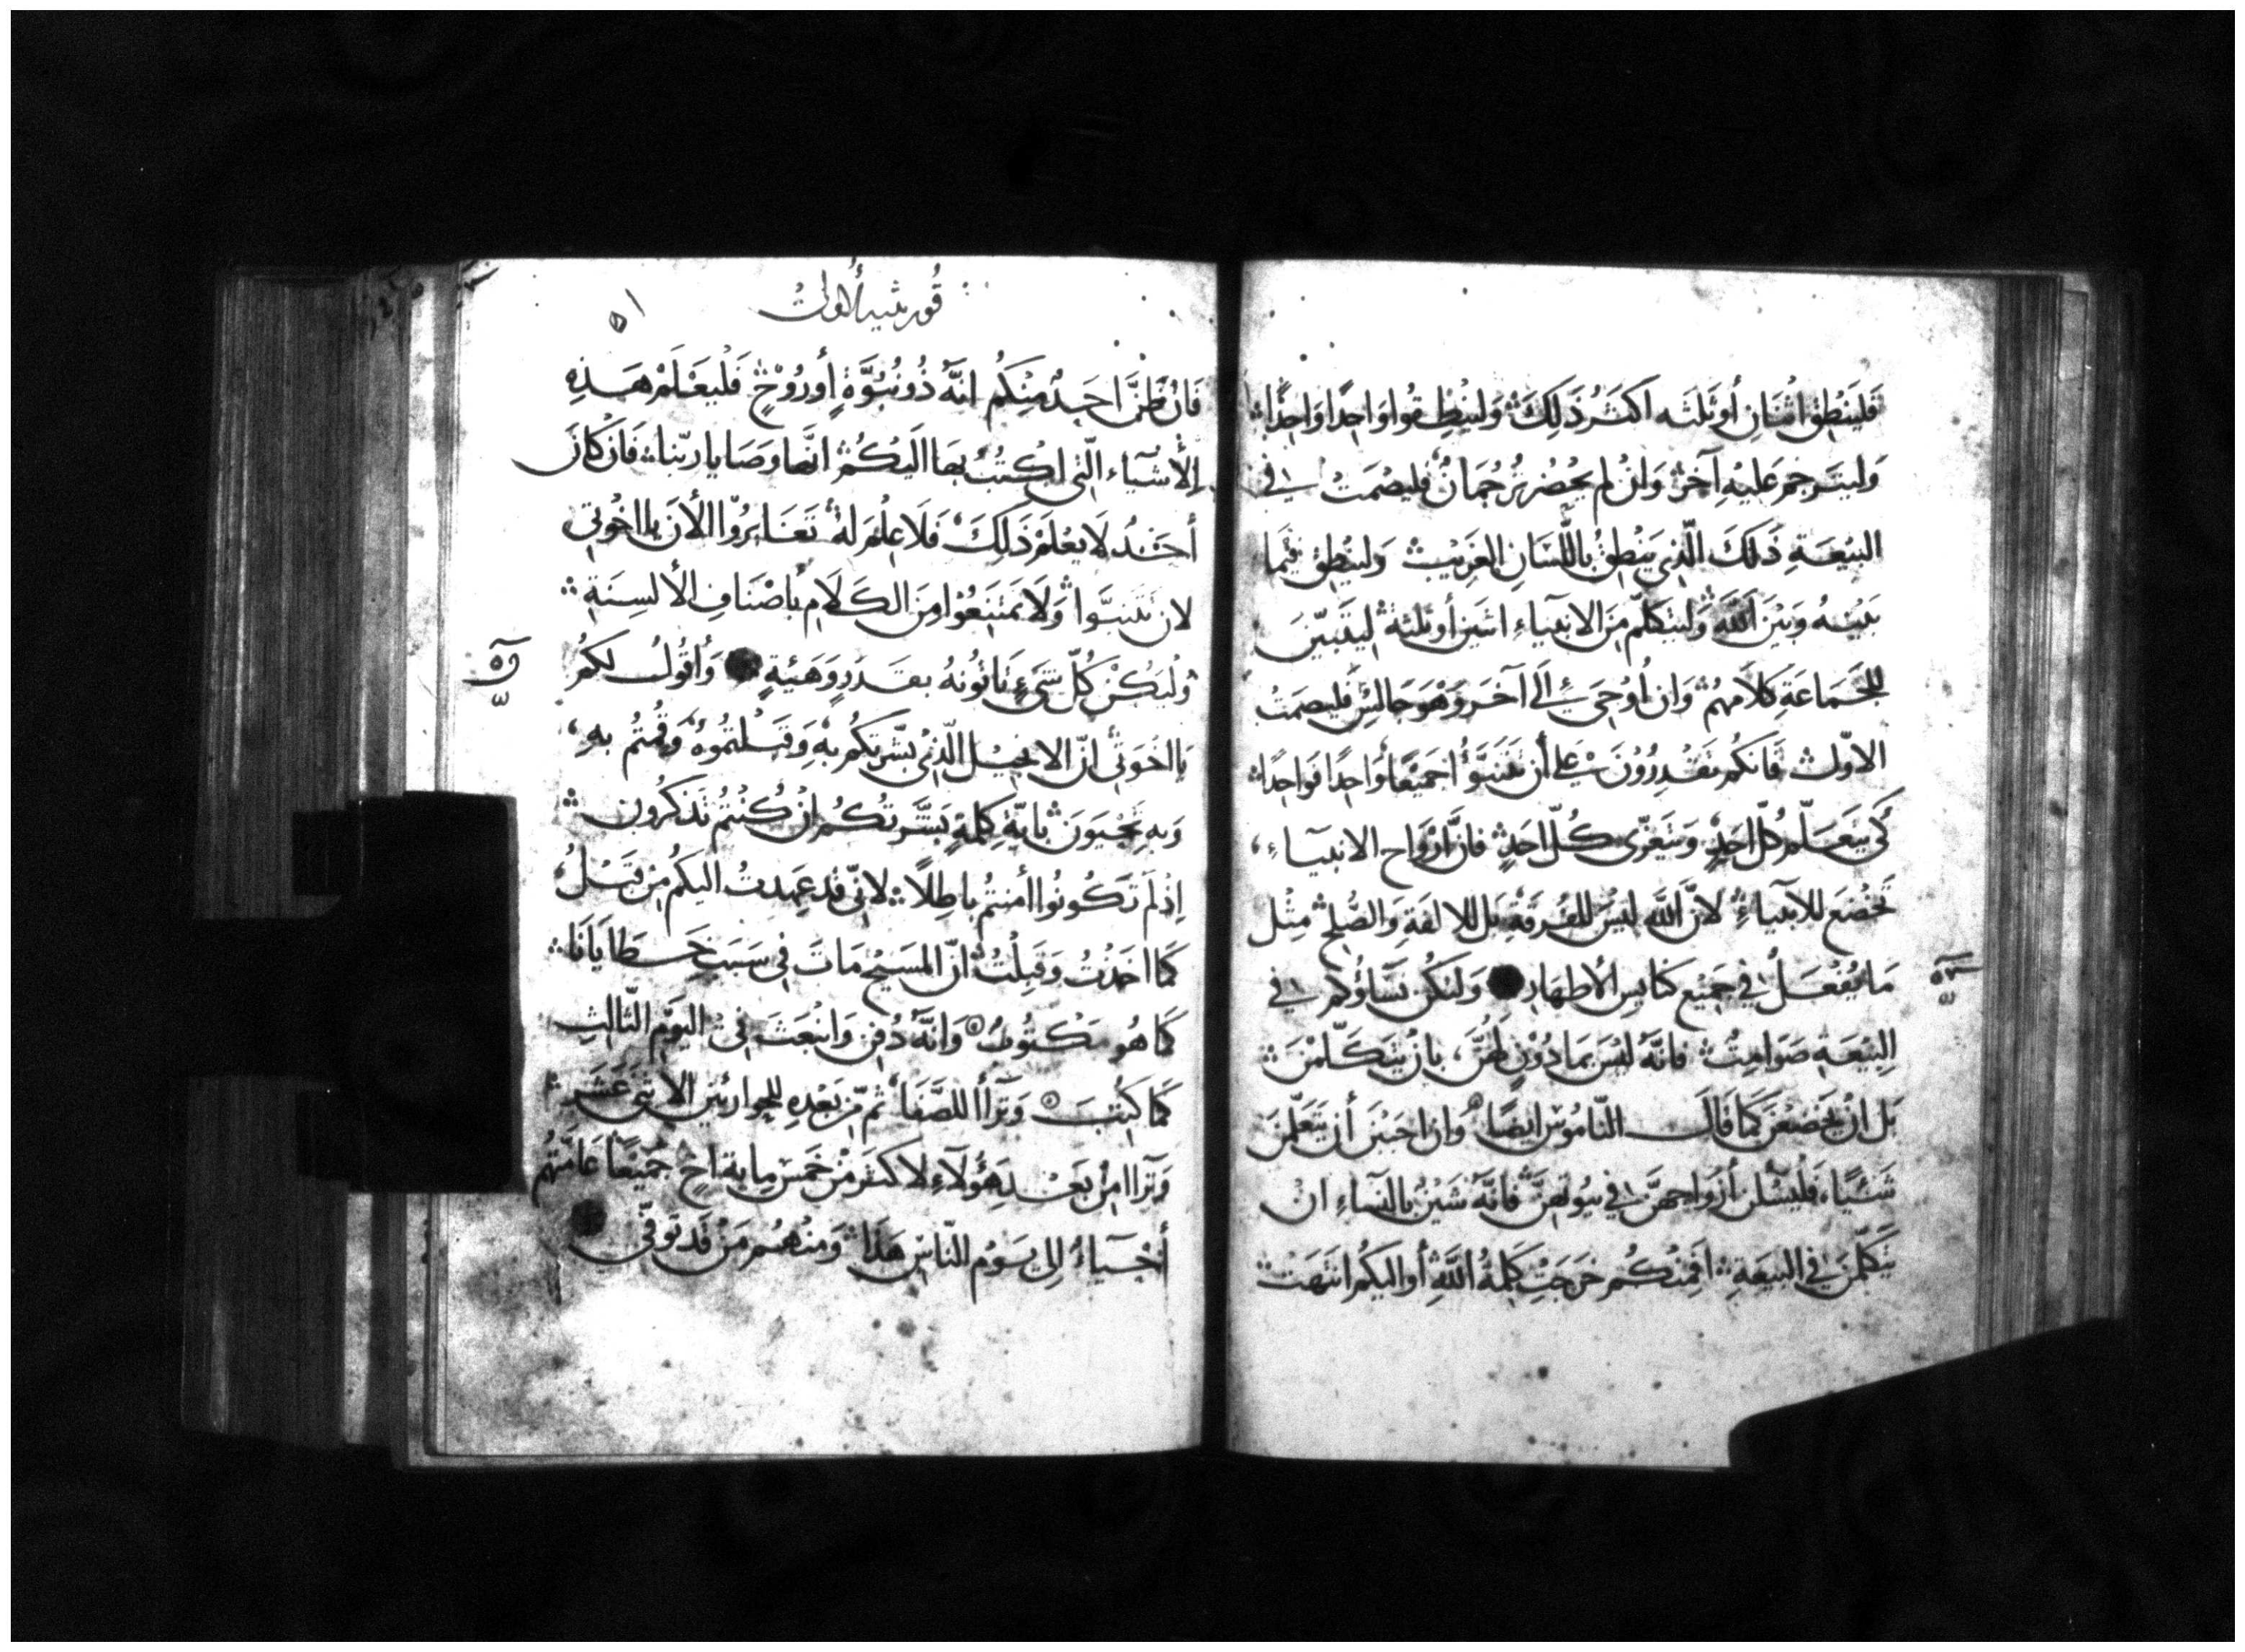 فَليَنْطِق اثْنَانِ أو ثَلثَه اكثَرُ ذَلِكَ ۞ وَلينْطِقُوا وَاحِدًا وَاحِدًا
وَليتَرجم عَليْهِ آخَرُ وَانْ لم يَحْضُر تُرجُمَانٌ فليَصْمَتْ في
البيْعَةِ ذَلكَ الّذِي يَنْطِقُ باللّسَانِ الغَريْبِ وَلينْطِق فيْمَا
بَيْنهُ وَبَيْنَ اللَّهِ وَليَتكلّم مِنَ الانبيَاءِ اثنين أو ثلثة ليَتَبيّنَ
للجَمَاعَةِ كلاَمهُمْ وَان أُوْحِيَ الَى آخَر وَهْوَ جَالسٌ فليصمَتْ
الاوّل فَانكم تَقْدِرُوْنَ عَلى أن تتنَبَّؤُا جَميْعًا وَاحِدًا فوَاحِدًا
كَي يَتَعَلّم كُل احَدٍ وَيتَعَزّى كُلّ احَدٍ فانَّ ارْوَاح الانبيَاءِ
تَخْضَع للأنبيَاءِ لانَّ اللَّه ليْسَ للفُرقَةِ بَل للالفَةِ وَالصُّلح مثْل
مَا يُفْعَلُ في جَميْع كنَايس الأطهَار وَلتَكُن نسَاؤُكم في
البيْعَةِ صَوَامِتُ فانّهُ ليْسَ بمَاذُوْنٍ لهُنَّ بانْ يتَكَلّمْنَ
بَل انْ يَخضَعْنَ كَما قَالَ النّامُوْس ايضًا وَان احبَبْنَ أن يتَعَلّمْنَ
شَيْئًا فَليسْئلن أزْوَاجهنَّ في بيُوتهنَّ فانَّهُ شَيْنٌ بالنّسَاءِ انْ
يتَكلّمْنَ في البيْعَةِ افمِنْكُم خرَجَتْ كَلِمَةُ اللَّهِ أو اليكُم انتَهَتْ
قورنثيه الاولى
٥١
فَانْ ظَنَّ احَدٌ مِنْكُم انَّهُ ذُو نُبُوَّةٍ أو رُوْحٍ فَلْيَعْلَمْ هَذِهِ
الأشْيَاء الّتي اكْتُبُ بهَا اليْكُمْ انّهَا وَصَايَا رَبّنَا فَانْ كانَ
أحَدٌ لاَ يعْلَمْ ذَلكَ فَلاَ عِلْمَ لهُ تَغَايرُوْا الأنَ يا اخْوَتي
لان تتَنبَّوا وَلاَ تمتنِعُوْا مِنَ الكَلاَمِ بأصْنَافِ الألسِنَةِ
وَليَكُنْ كُلّ شَيءٍ تَاتُونَهُ بقَدَرٍ وَهَيْئةٍ وَأقُولُ لكم
يا اخْوَتي انّ الانجيْل الّذِيْ بشّرتكُم بهِ وَقَبلْتمُوهُ وَقُمتُم بهِ
وَبهِ تَحْيَوْنَ بايّةِ كَلِمَةٍ بَشَّرتكُم انْ كُنْتُم تَذكرُون
اِذْ لَم تَكُونُوا أمنتُم بَاطِلاً لانّي قَد عَهِدتُ اليكُم مِنْ قَبْلُ
كَما اخَذْتُ وَقَبِلْتُ انّ المَسيْحَ مَاتَ في سَبَبِ خَطَايَانَا
كَما هُو مَكْتُوبٌ وَانَّهُ دُفِنَ وَانْبَعَثَ في اليَوْمِ الثّالِثِ
كَما كُتِبَ وَترَأا للصَّفَا ثمّ مِنْ بَعْدِهِ للحوَاريّين الاثنَي عَشَرَ
وَترَاا مِنْ بَعْد هَؤُلآءِ لاكثَر مِنْ خَمس مايةِ اخٍ جَميْعًا عَامّتهُم
أحْيَاءٌ الى يَوْمِ النّاسِ هَذَا وَمِنْهُم مَنْ قَد تُوفّي